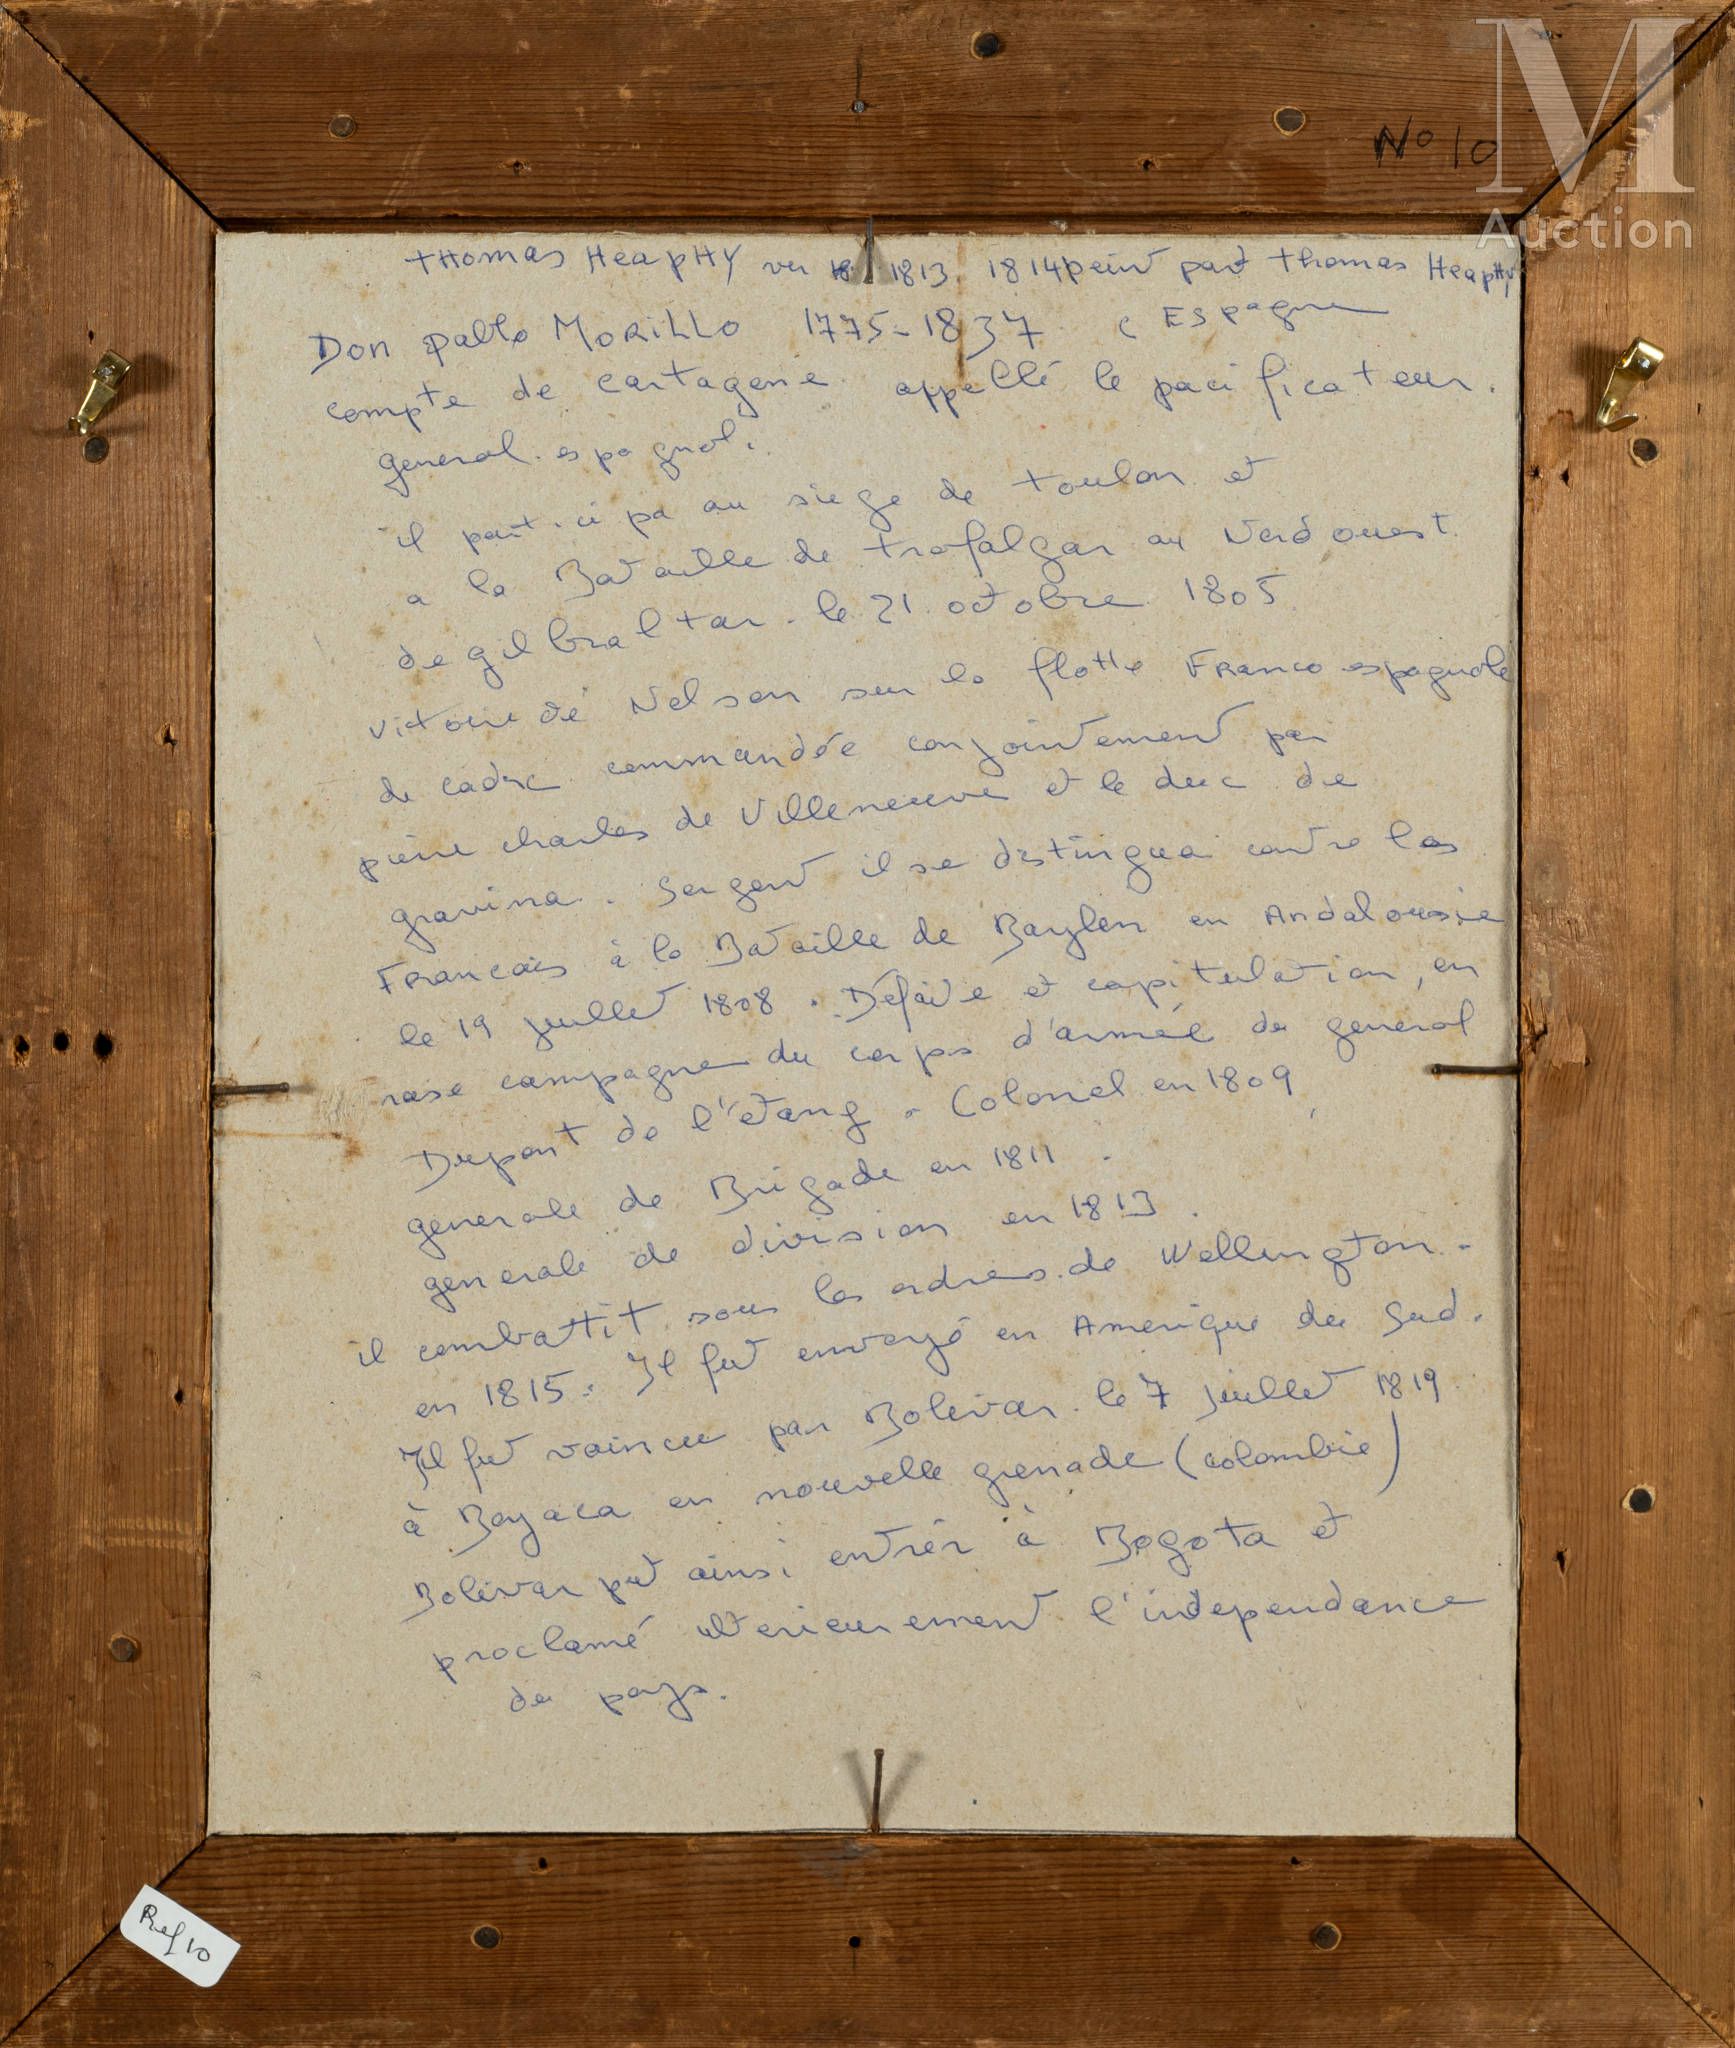 M
Auction
No 10
THOMAS HEAPHY ver 1813. 1814 peint part Thomas Heaphy
Don pablo MORILLO 1775-1837 ( Espagne
compte de cartagene appellé le pacificateur.
general. espagnol.
il participa au siege de toulon et
a la Bataille de trafalgar au Nord ouest
de gilbraltar. le 21 octobre 1805
victoire de Nelson sur la flotte Franco espagnole
de cadix commandée conjointement par
pierre charles de Villeneuve et le duc de
gravina. Sergent il se distingua contre les
Francais à la Bataille de Baylen en Andalousie
le 19 juillet 1808. Défaite et capitulation, en
rase campagne du corps d'armée du general
Dupont de l'étang. Colonel en 1809,
generale de Brigade en 1811.
generale de division en 1813.
il combattit sous les ordres de Wellington.
en 1815. Il fut envoyé en Amerique du Sud.
Il fut vaincu par Bolivar. le 7 juillet 1819
à Boyaca en nouvelle grenade (colombie)
Bolivar put ainsi entrér à Bogota et
proclamé ulterieurement l'independance
du pays.
Ref 10